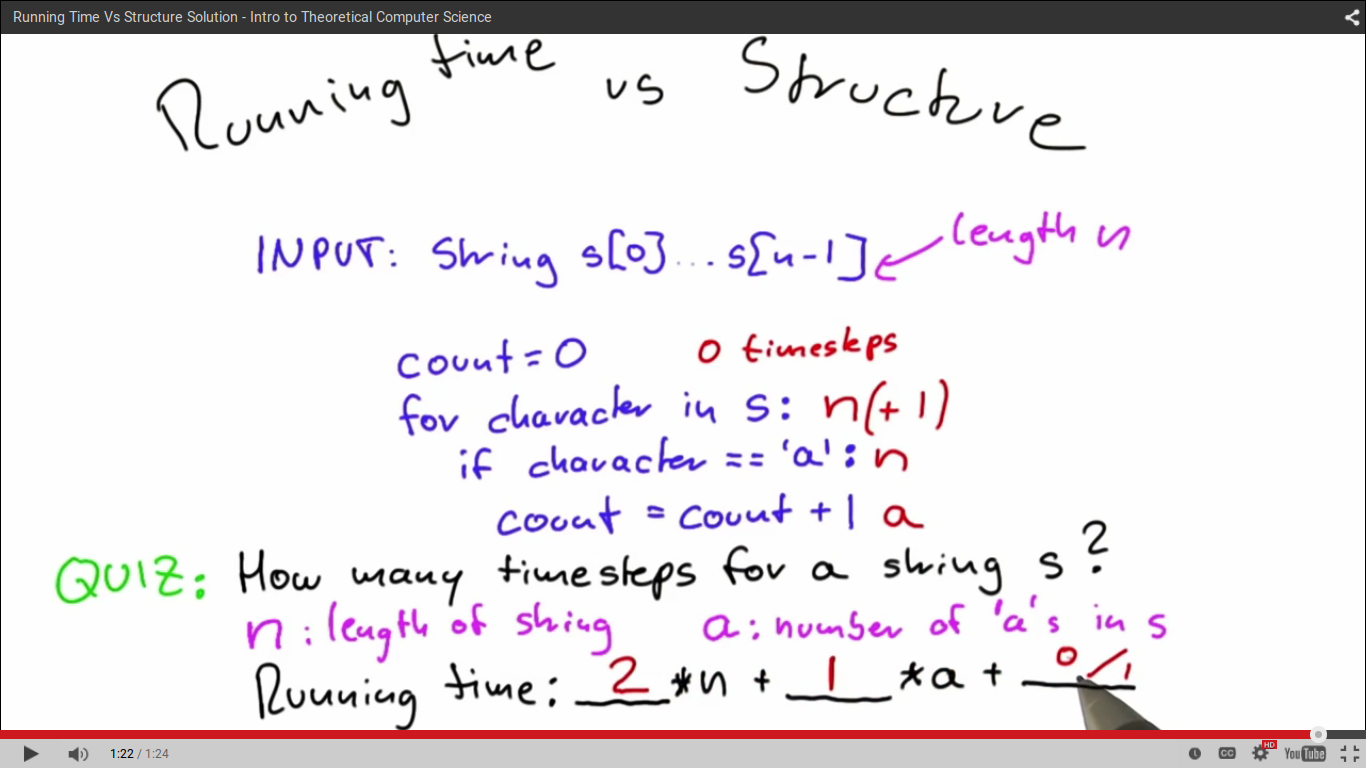 Running Time Vs Structure Solution - Intro to Theoretical Computer Science
Running time vs Structure
INPUT: String s[0]...s[n-1] length n
count = 0 0 timesteps
for character in s: n(+1)
if character == 'a': n
count = count + 1 a
QUIZ: How many timesteps for a string s?
n: length of string a: number of 'a's in s
Running time: 2 *n + 1 *a + 0/1
1:22 / 1:24 CC HD YouTube